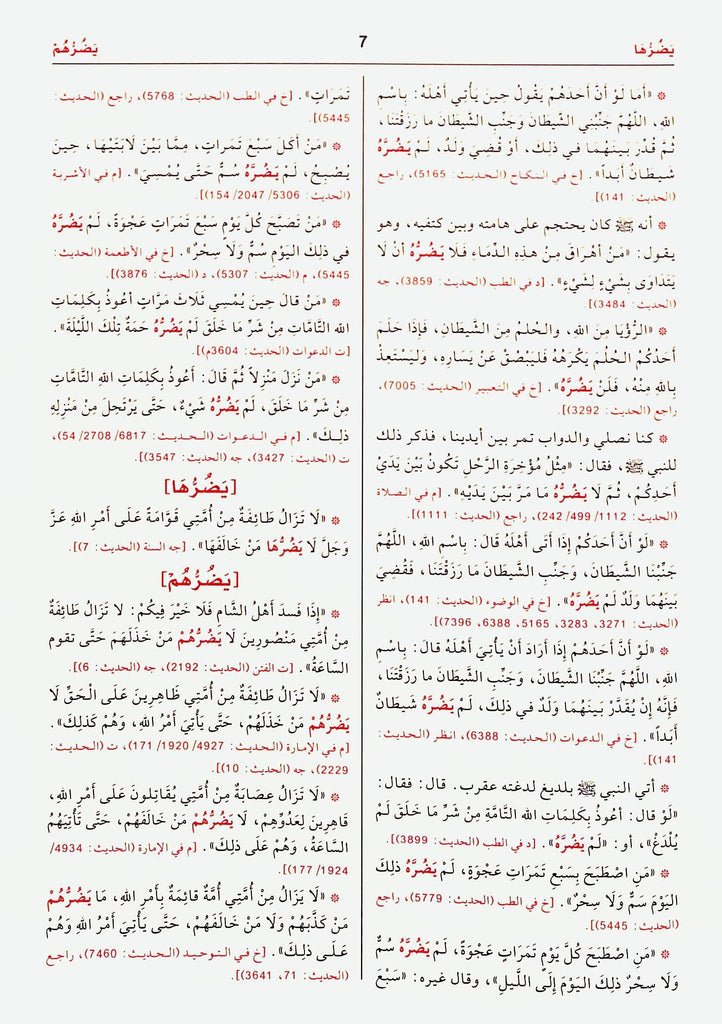 يَضُرُّهَا
7
يَضُرُّهُمْ
* «أَما لَوْ أَنَّ أَحَدَهُمْ يَقُولُ حِينَ يَأْتِي أَهْلَهُ: بِاسْمِ
اللهِ، اللَّهُمَّ جَنِّبْنِي الشَّيْطَانَ وَجَنِّبِ الشَّيْطَانَ ما رَزَقْتَنَا،
ثُمَّ قُدِّرَ بَيْنَهُمَا في ذلِكَ، أَوْ قُضِيَ وَلَدٌ، لَمْ يَضُرَّهُ
شَيطَانٌ أَبَداً». [خ في النكاح (الحديث: 5165)، راجع
(الحديث: 141)].
* أنه ﷺ كان يحتجم على هامته وبين كتفيه، وهو
يقول: «مَنْ أَهْرَاقَ مِنْ هذِهِ الدِّمَاءِ فَلَا يَضُرُّهُ أنْ لَا
يَتَدَاوَى بِشَيْءٍ لِشَيْءٍ». [د في الطب (الحديث: 3859)، جه
(الحديث: 3484)].
* «الرُّؤْيَا مِنَ اللهِ، والحُلمُ مِنَ الشَّيطَانِ، فَإِذَا حَلَمَ
أَحَدُكُمْ الحُلْمَ يَكْرَهُهُ فَليَبْصُقْ عَنْ يَسَارِهِ، وَليَسْتَعِذْ
بِاللهِ مِنْهُ، فَلَنْ يَضُرَّهُ». [خ في التعبير (الحديث: 7005)،
راجع (الحديث: 3292)].
* كنا نصلي والدواب تمر بين أيدينا، فذكر ذلك
للنبي ﷺ، فقال: «مِثْلُ مُؤْخِرَةِ الرَّحْلِ تَكُونُ بَيْنَ يَدَيْ
أَحَدِكُمْ، ثُمَّ لَا يَضُرُّهُ مَا مَرَّ بَيْنَ يَدَيْهِ». [م في الصلاة
(الحديث: 1112/ 499/ 242)، راجع (الحديث: 1111)].
* «لَوْ أَنَّ أَحَدَكُمْ إِذَا أَتَى أَهْلَهُ قَالَ: بِاسْمِ اللهِ، اللَّهُمَّ
جَنِّبْنَا الشَّيْطَانَ، وَجَنِّبِ الشَّيْطَانَ مَا رَزَقْتَنَا، فَقُضِيَ
بَيَنَهُمَا وَلَدٌ لَمْ يَضُرَّهُ». [خ في الوضوء (الحديث: 141)، انظر
(الحديث: 3271، 3283، 5165، 6388، 7396)].
* «لَوْ أَنَّ أَحَدَهُمْ إِذَا أَرَادَ أَنْ يَأْتِيَ أَهْلَهُ قالَ: بِاسْمِ
اللهِ، اللَّهُمَّ جَنِّبْنَا الشَّيطَانَ، وَجَنِّبِ الشَّيطَانَ ما رَزَقْتَنَا،
فَإِنَّهُ إِنْ يُقَدَّرْ بَينَهُمَا وَلَدٌ في ذلِكَ، لَمْ يَضُرَّهُ شَيطَانٌ
أَبَداً». [خ في الدعوات (الحديث: 6388)، انظر (الحديث:
141)].
* أتي النبي ﷺ بلديغ لدغته عقرب. قال: فقال:
«لَوْ قال: أعُوذُ بكَلِمَاتِ الله التَّامَّةِ مِنْ شَرِّ مَا خَلَقَ لَمْ
يُلْدَغْ»، أو: «لَمْ يَضُرَّهُ». [د في الطب (الحديث: 3899)].
* «مَنِ اصْطَبَحَ بِسَبْعِ تَمَرَاتِ عَجْوَةٍ، لَمْ يَضُرَّهُ ذلِكَ
اليَوْمَ سَمٌّ وَلَا سِحْرٌ». [خ في الطب (الحديث: 5779)، راجع
(الحديث: 5445)].
* «مَنِ اصْطَبَحَ كُلَّ يَوْمٍ تَمَرَاتٍ عَجْوَةً، لَمْ يَضُرَّهُ سُمٌّ
وَلَا سِحْرٌ ذلِكَ اليَوْمَ إِلَى اللَّيلِ»، وقال غيره: «سَبْعَ
تَمَرَاتٍ». [خ في الطب (الحديث: 5768)، راجع (الحديث:
5445)].
* «مَنْ أَكَلَ سَبْعَ تَمَرَاتٍ، مِمَّا بَيْنَ لَابَتَيْهَا، حِينَ
يُصْبِحُ، لَمْ يَضُرَّهُ سُمٌّ حَتَّى يُمْسِيَ». [م في الأشربة
(الحديث: 5306/ 2047/ 154)].
* «مَنْ تَصَبَّحَ كُلَّ يَوْمٍ سَبْعَ تَمَرَاتٍ عَجْوَةً، لَمْ يَضُرَّهُ
في ذلِكَ اليَوْمِ سُمٌّ وَلَا سِحْرٌ». [خ في الأطعمة (الحديث:
5445)، م (الحديث: 5307)، د (الحديث: 3876)].
* «مَنْ قالَ حِينَ يُمْسِي ثَلَاثَ مَرَّاتٍ أعُوذُ بِكَلِمَاتِ
الله التَّامَّاتِ مِنْ شَرِّ مَا خَلَقَ لَمْ يَضُرُّهُ حَمَةٌ تِلْكَ اللَّيْلَةَ».
[ت الدعوات (الحديث: 3604م)].
* «مَنْ نَزَلَ مَنْزِلاً ثُمَّ قَالَ: أَعُوذُ بِكَلِمَاتِ اللهِ التَّامَّاتِ
مِنْ شَرِّ مَا خَلَقَ، لَمْ يَضُرُّهُ شَيْءٌ، حَتَّى يَرْتَحِلَ مِنْ مَنْزِلِهِ
ذلِكَ». [م في الدعوات (الحديث: 6817/ 2708/ 54)،
ت (الحديث: 3427)، جه (الحديث: 3547)].
[يَضُرُّهَا]
* «لَا تَزَالُ طَائِفَةٌ مِنْ أُمَّتِي قَوَّامَةً عَلَى أَمْرِ اللهِ عَزَّ
وَجَلَّ لَا يَضُرُّهَا مَنْ خَالَفَهَا». [جه السنة (الحديث: 7)].
[يَضُرُّهُمْ]
* «إِذَا فَسدَ أَهْلُ الشَّامِ فَلَا خَيْرَ فِيكُمْ: لا تَزَالُ طَائِفَةٌ
مِنْ أُمَّتِي مَنْصُورِينَ لَا يَضُرُّهُمْ مَنْ خَذَلَهَمَ حَتَّى تقوم
السَّاعَةُ». [ت الفتن (الحديث: 2192)، جه (الحديث: 6)].
* «لَا تَزَالُ طَائِفَةٌ مِنْ أُمَّتِي ظَاهِرِينَ عَلَى الْحَقِّ لَا
يَضُرُّهُمْ مَنْ خَذَلَهُمْ، حَتَّى يَأْتِيَ أَمْرُ اللهِ، وَهُمْ كَذلِكَ».
[م في الإمارة (الحديث: 4927/ 1920/ 171)، ت (الحديث:
2229)، جه (الحديث: 10)].
* «لَا تَزَالُ عِصَابَةٌ مِنْ أُمَّتِي يُقَاتِلونَ عَلَى أَمْرِ اللهِ،
قَاهِرِينَ لِعَدُوِّهِمْ، لَا يَضُرُّهُمْ مَنْ خَالَفَهُمْ، حَتَّى تَأْتِيَهُمُ
السَّاعَةُ، وَهُمْ عَلَى ذلِكَ». [م في الإمارة (الحديث: 4934/
1924/ 177)].
* «لَا يَزَالُ مِنْ أُمَّتِي أُمَّةٌ قائِمَةٌ بِأَمْرِ اللهِ، مَا يَضُرُّهُمْ
مَنْ كَذَّبَهُمْ وَلَا مَنْ خَالَفَهُمْ، حَتَّى يَأْتِيَ أَمْرُ اللهِ وَهُمْ
عَلَى ذلِكَ». [خ في التوحيد (الحديث: 7460)، راجع
(الحديث: 71، 3641)].